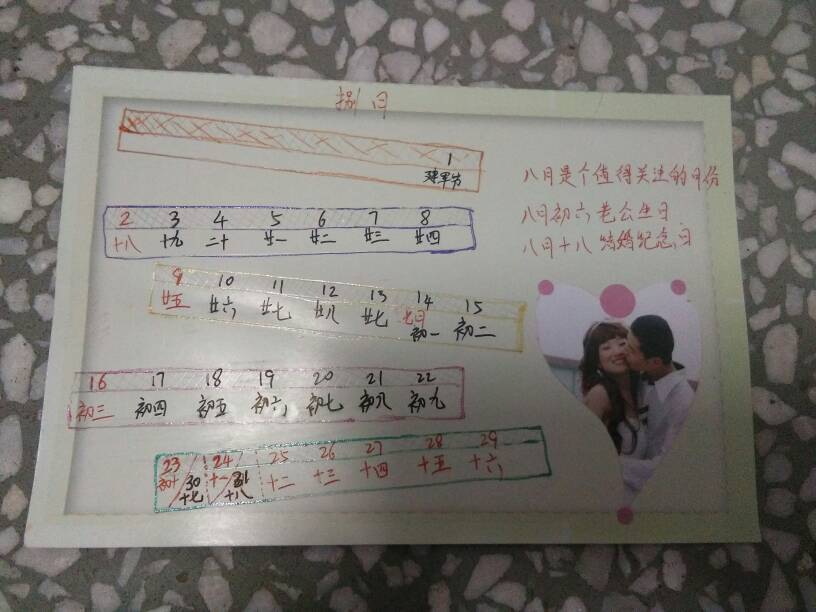 捌月
1
建军节
2 3 4 5 6 7 8
十八 十九 二十 廿一 廿二 廿三 廿四
9 10 11 12 13 14 15
廿五 廿六 廿七 廿八 廿七 七月初一 初二
16 17 18 19 20 21 22
初三 初四 初五 初六 初七 初八 初九
23 24 25 26 27 28 29
初十 十一 十二 十三 十四 十五 十六
30 31
十七 十八
八月是个值得关注的月份
八月初六 老公生日
八月十八 结婚纪念日